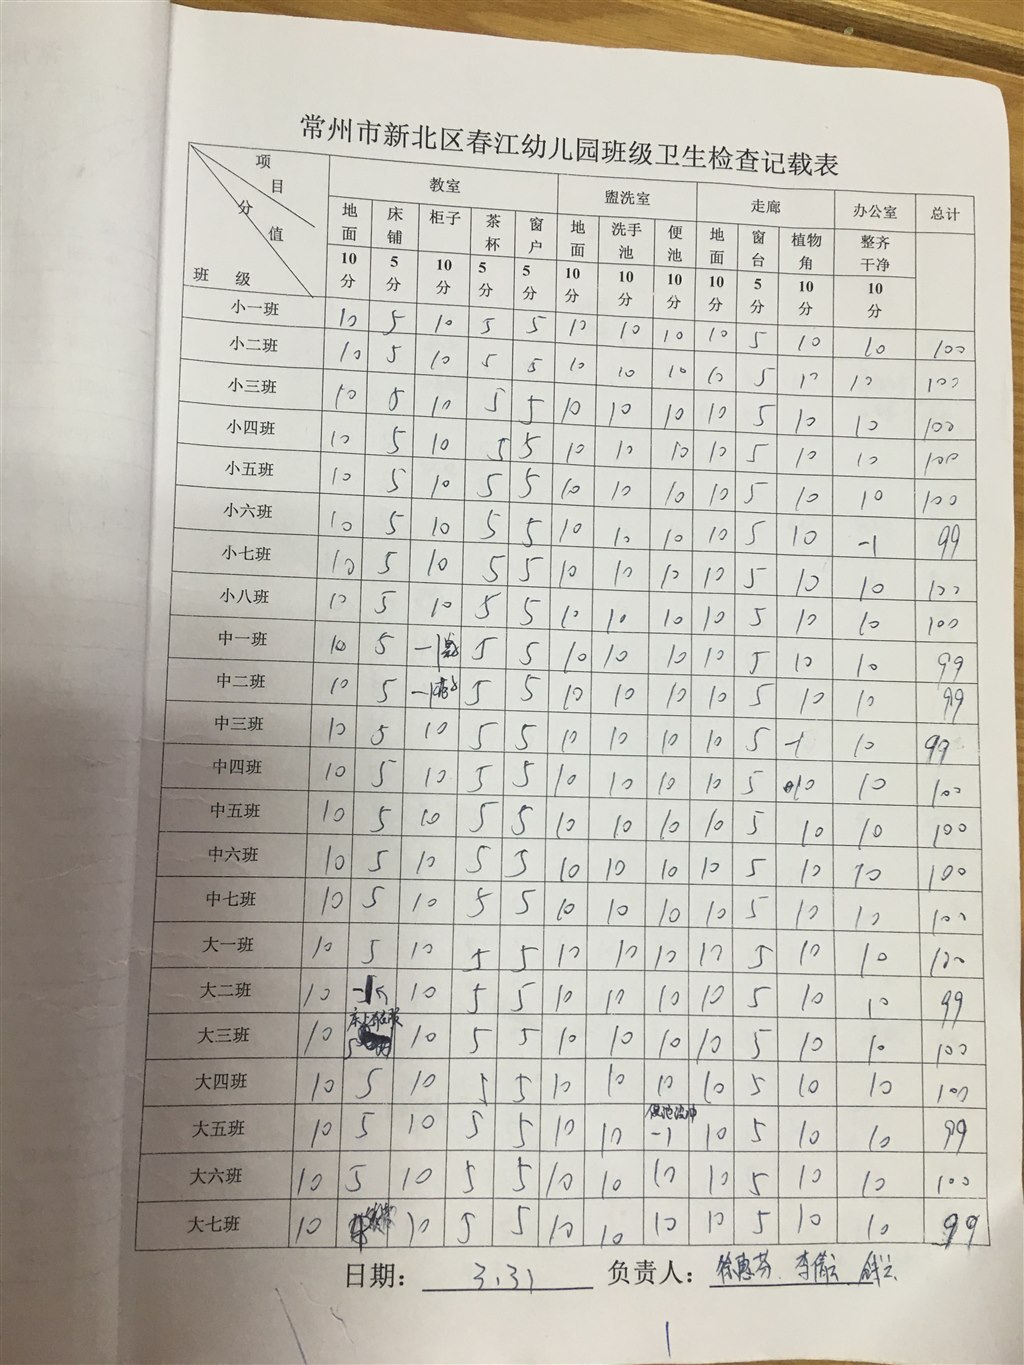 常州市新北区春江幼儿园班级卫生检查记载表
项目 分值 班级 教室 盥洗室 走廊 办公室 总计
地面 床铺 柜子 茶杯 窗户 地面 洗手池 便池 地面 窗台 植物角 整齐干净
10分 5分 10分 5分 5分 10分 10分 10分 10分 5分 10分 10分
小一班 10 5 10 5 5 10 10 10 10 5 10 10 100
小二班 10 5 10 5 5 10 10 10 10 5 10 10 100
小三班 10 5 10 5 5 10 10 10 10 5 10 10 100
小四班 10 5 10 5 5 10 10 10 10 5 10 10 100
小五班 10 5 10 5 5 10 10 10 10 5 10 10 100
小六班 10 5 10 5 5 10 10 10 10 5 10 -1 99
小七班 10 5 10 5 5 10 10 10 10 5 10 10 100
小八班 10 5 10 5 5 10 10 10 10 5 10 10 100
中一班 10 5 -1 5 5 10 10 10 10 5 10 10 99
中二班 10 5 -1 5 5 10 10 10 10 5 10 10 99
中三班 10 5 10 5 5 10 10 10 10 5 -1 10 99
中四班 10 5 10 5 5 10 10 10 10 5 10 10 100
中五班 10 5 10 5 5 10 10 10 10 5 10 10 100
中六班 10 5 10 5 5 10 10 10 10 5 10 10 100
中七班 10 5 10 5 5 10 10 10 10 5 10 10 100
大一班 10 5 10 5 5 10 10 10 10 5 10 10 100
大二班 10 -1 10 5 5 10 10 10 10 5 10 10 99
大三班 10 5 10 5 5 10 10 10 10 5 10 10 100
大四班 10 5 10 5 5 10 10 10 10 5 10 10 100
大五班 10 5 10 5 5 10 10 -1 10 5 10 10 99
大六班 10 5 10 5 5 10 10 10 10 5 10 10 100
大七班 10 10 5 5 10 10 10 10 5 10 10 99
日期： 3.31 负责人： 徐惠芬